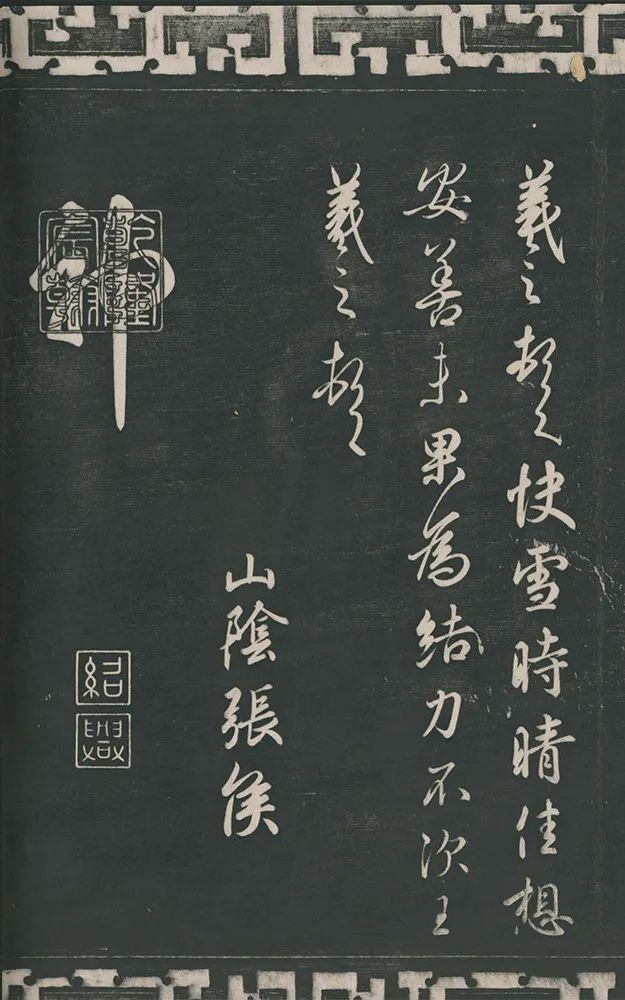 羲之頓首快雪時晴佳想
安善未果為結力不次王
羲之頓首
山陰張侯
神
紹
興